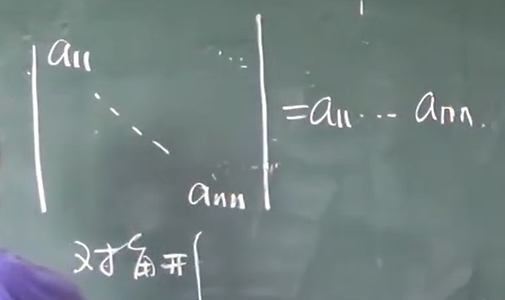 | a₁₁ ⋱ aₙₙ | = a₁₁ ··· aₙₙ.
对角开